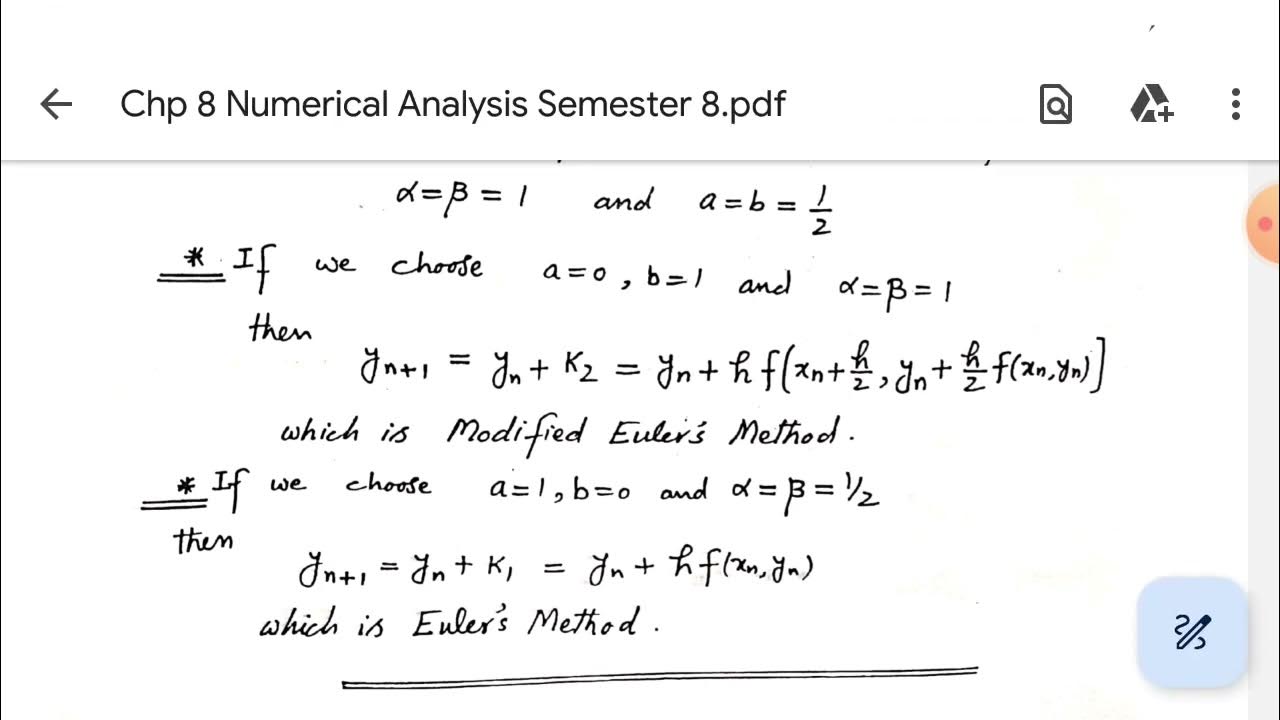 Chp 8 Numerical Analysis Semester 8.pdf
α=β=1 and a=b=1/2
* If we choose a=0, b=1 and α=β=1
then
yₙ₊₁ = yₙ + K₂ = yₙ + h f(xₙ + h/2, yₙ + h/2 f(xₙ, yₙ)]
which is Modified Euler's Method.
* If we choose a=1, b=0 and α=β=1/2
then
yₙ₊₁ = yₙ + K₁ = yₙ + h f(xₙ, yₙ)
which is Euler's Method.